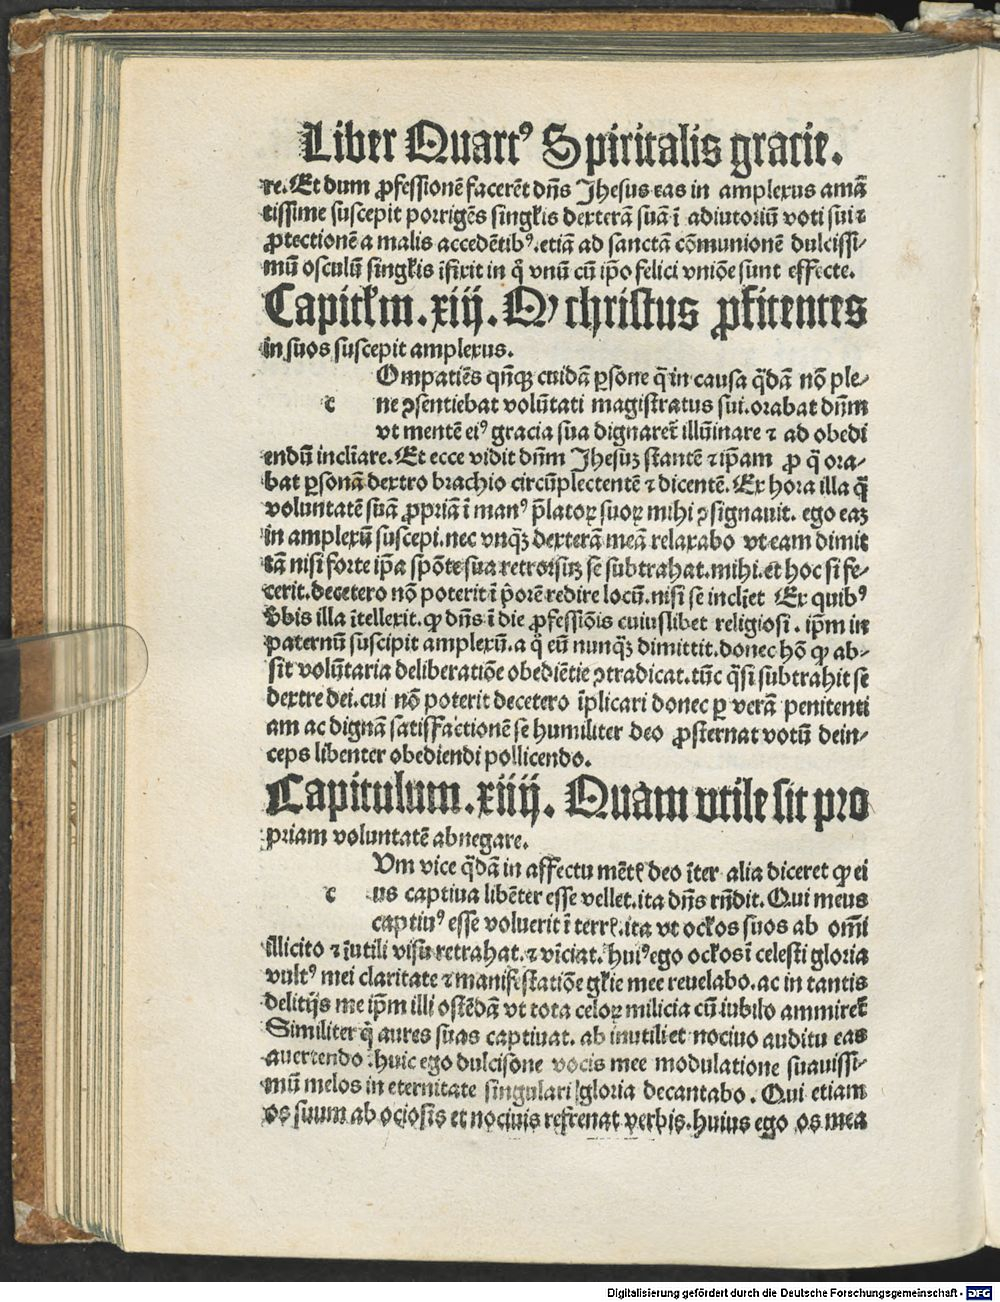 Liber Quartꝰ Spiritalis gracie.
re. Et dum ꝓfessionē facerēt dn̄s Jhesus eas in amplexus amā
tissime suscepit porrigēs singl̓is dexterā suā ī adiutoriū voti sui ⁊
ꝓtectionē a malis accedētibꝰ. etiā ad sanctā cōmunionē dulcissi⸗
mū osculū singl̓is īfixit in q̄ vnū cū ip̄o felici vniōe sunt effecte.
Capitl̓m. xiij. Qꝙ christus ꝓfitentes
in suos suscepit amplexus.
Ompatiēs qn̄qꝫ cuidā ꝑsone q̄ in causa q̄dā nō ple⸗
c ne ꝯsentiebat volūtati magistratus sui. orabat dn̄m
vt mentē eiꝰ gracia sua dignaret̉ illūinare ⁊ ad obedi
endū inclīare. Et ecce vidit dn̄m Jhesuꝫ stantē ⁊ ip̄am ꝓ q̄ ora⸗
bat ꝑsonā dextro brachio circūplectentē ⁊ dicentē. Ex hora illa q̄
voluntatē suā ꝓpriā ī manꝰ p̄latoꝝ suoꝝ mihi ꝯsignauit. ego eaꝫ
in amplexū suscepi. nec vnqꝫ̄ dexterā meā relaxabo vt eam dimit
tā nisi forte ip̄a spōte sua retrorsuꝫ se subtrahat. mihi. et hoc si fe⸗
cerit. decetero nō poterit ī p̓orē redire locū. nisi se incliēt Ex quibꝰ
v̓bis illa ītellexit. ꝙ dn̄s ī die ꝓfessiōis cuiuslibet religiosi. ip̄m in
paternū suscipit amplexū. a q̄ eū nunqꝫ̄ dimittit. donec hō ꝙ ab⸗
sit volūtaria deliberatiōe obediētie ꝯtradicat. tūc q̄si subtrahit se
dextre dei. cui nō poterit decetero īplicari donec ꝑ verā penitenti
am ac dignā satisfactionē se humiliter deo ꝓsternat votū dein⸗
ceps libenter obediendi pollicendo.
Capitulum. xiiij. Quam vtile sit pro
priam voluntatē abnegare.
Vm vice q̄dā in affectu mētꝭ deo īter alia diceret ꝙ ei
c us captiua libēter esse vellet. ita dn̄s rn̄dit. Qui meus
captiuꝰ esse voluerit ī terrꝭ. ita vt ocl̓os suos ab om̄i
illicito ⁊ īutili visu retrahat. ⁊ vīciat. huiꝰ ego ocl̓os ī celesti gloria
vultꝰ mei claritate ⁊ manifestatiōe gl̓ie mee reuelabo. ac in tantis
delitijs me ip̄m illi ostēdā vt tota celoꝝ milicia cū iubilo ammiret̉
Similiter q̄ aures suas captiuat. ab inutili et nociuo auditu eas
auertendo huic ego dulcisone vocis mee modulatione suauissi⸗
mū melos in eternitate singulari gloria decantabo. Qui etiam
os suum ab ociosis et nociuis refrenat verbis. huius ego os mea
Digitalisierung gefördert durch die Deutsche Forschungsgemeinschaft - DFG